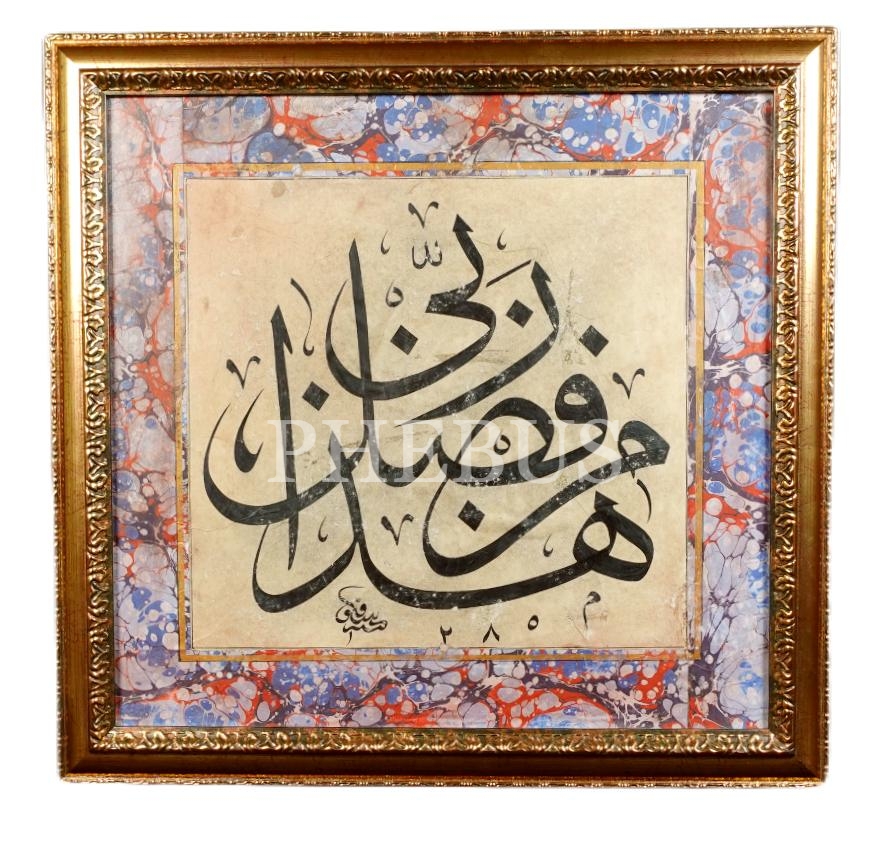 هذا من فضل ربي
PHEBUS
٢٨٥